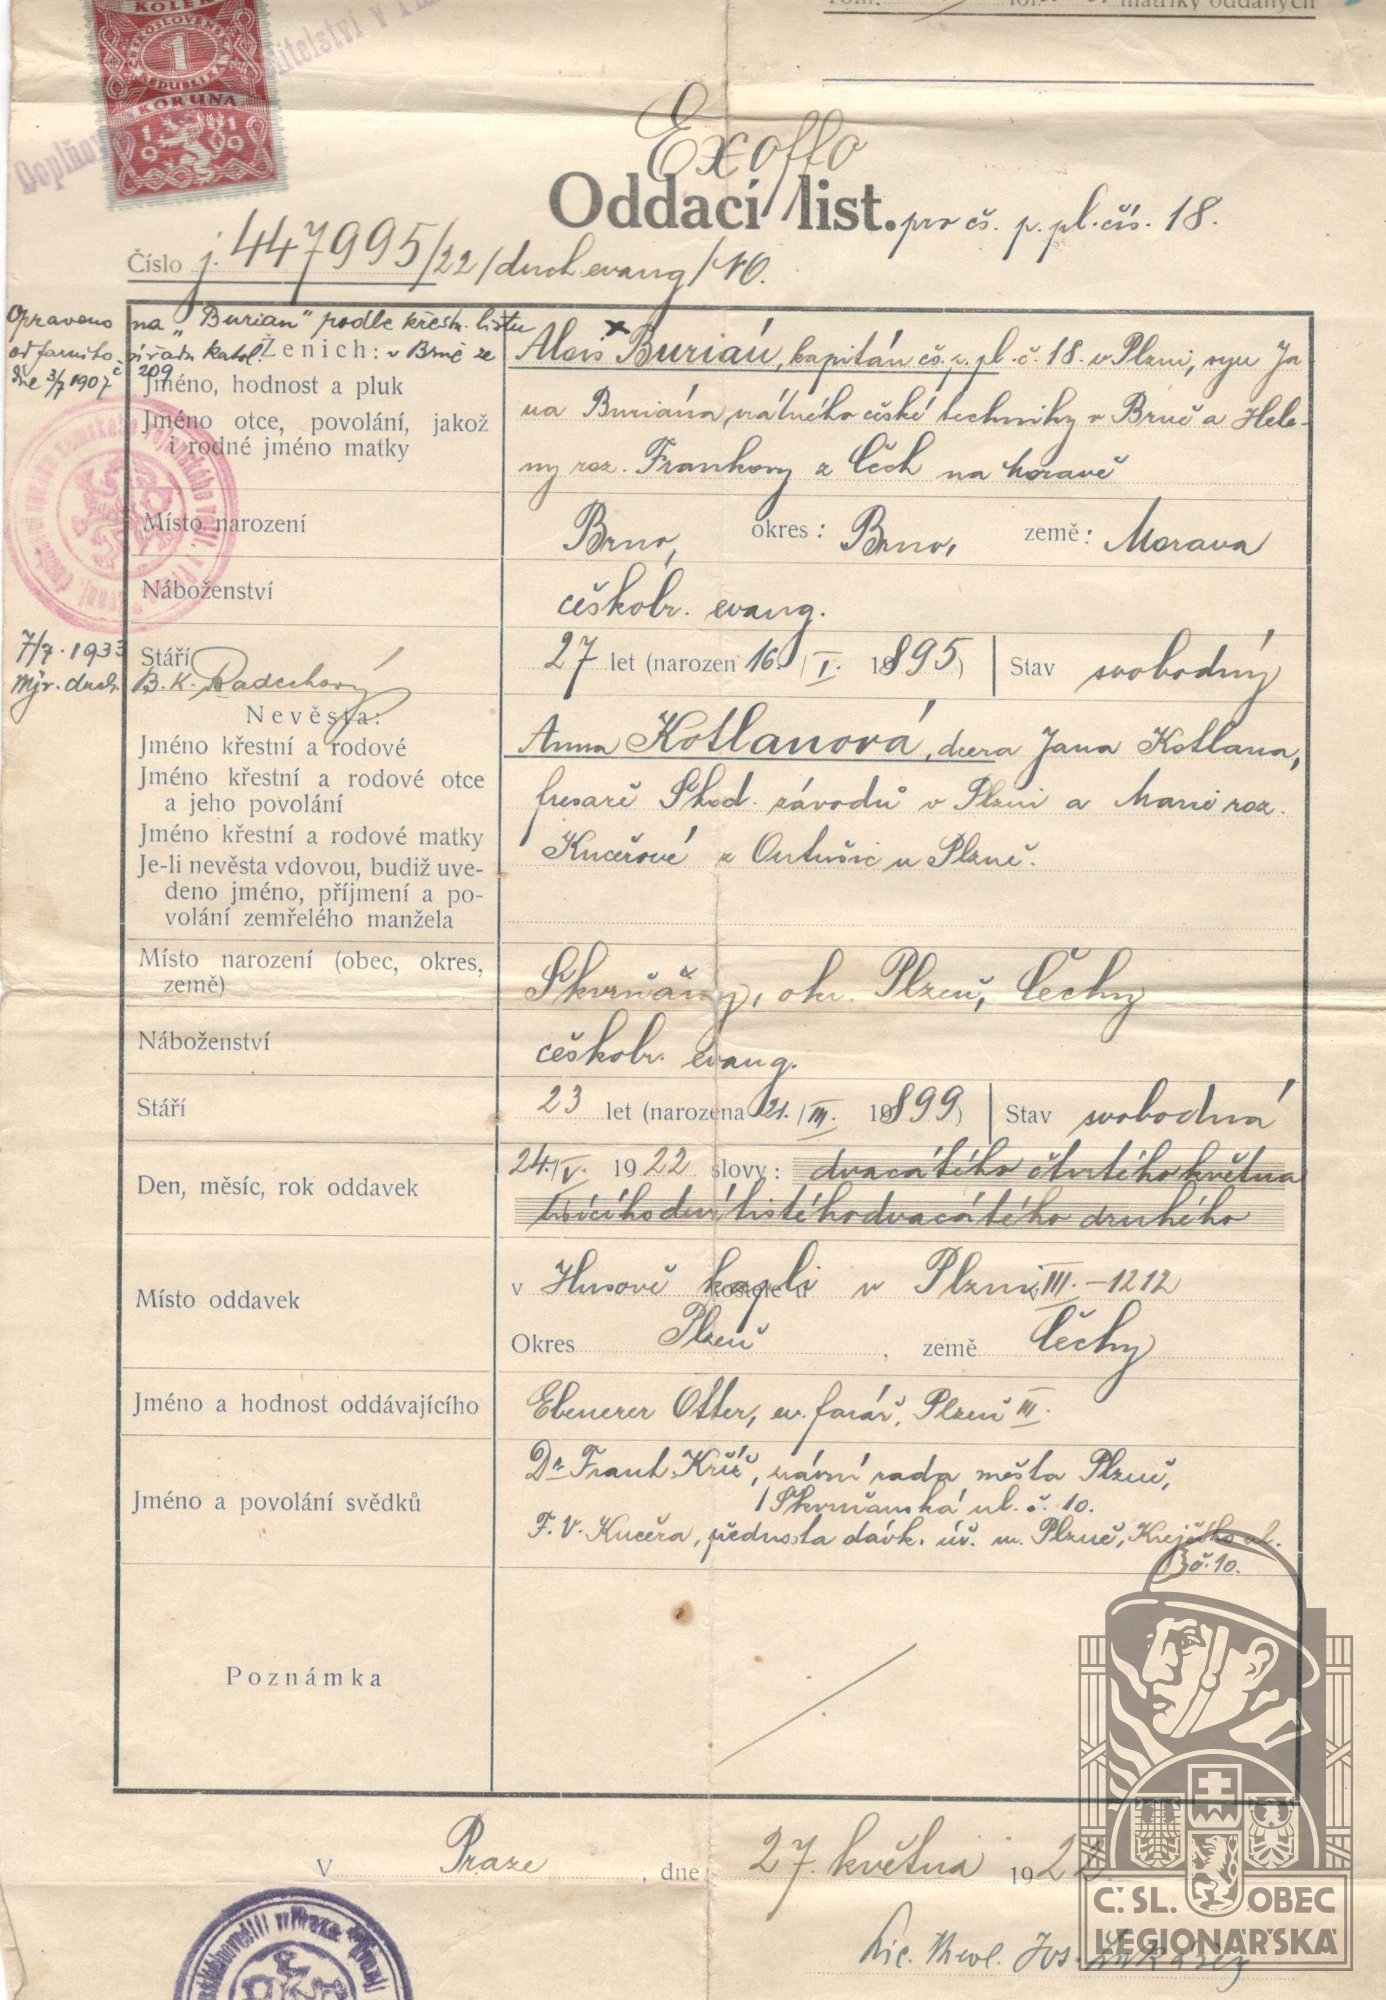 matriky oddaných
KOLEK
ČESKOSLOVENSKÁ
1
KORUNA
1919
Doplňov
itelství v
Exoffo
Oddací list. pro čs. p. pl. čís. 18.
Číslo j. 447995/22/duch evang/NO.
Opraveno na „Burian" podle křestn. listu
od farního úřadu katol. v Brně ze
dne 3/7 1907 č 209
Ženich:
Jméno, hodnost a pluk
Jméno otce, povolání, jakož
i rodné jméno matky
Alois × Burián, kapitán čs. p. pl. č. 18. v Plzni, syn Ja
na Buriána, vrátného české techniky v Brně a Hele-
ny roz. Frankovy z Čech na Moravě
Místo narození
Brno, okres: Brno, země: Morava
Náboženství
českobr. evang.
Stáří
27 let (narozen 16. / I. 1895) Stav svobodný
7/7. 1933
B. K.
Nevěsta:
Jméno křestní a rodové
Jméno křestní a rodové otce
a jeho povolání
Jméno křestní a rodové matky
Je-li nevěsta vdovou, budiž uve-
deno jméno, příjmení a po-
volání zemřelého manžela
Anna Kotlanová, dcera Jana Kotlana,
fresaře Škod. závodů v Plzni a Marie roz.
Kučerové z u Plzně.
Místo narození (obec, okres,
země)
Skvrňany, okr. Plzeň, Čechy
Náboženství
českobr. evang.
Stáří
23 let (narozena 21. / III. 1899) Stav svobodná
Den, měsíc, rok oddavek
24. / V. 1922 slovy: dvacátého čtvrtého května
tisícího devítistého dvacátého druhého
Místo oddavek
v Husově kapli v Plzni, III. – 1212
kostele u
Okres Plzeň, země Čechy
Jméno a hodnost oddávajícího
Ebenezer Otter, ev. farář, Plzeň III.
Jméno a povolání svědků
Dr Frant. Kříž, právní rada města Plzně,
Skvrňanská ul. č. 10.
F. V. Kučera, přednosta dávk. úř. m. Plzně, ul.
č. 10.
Poznámka
V Praze, dne 27. května 1922
Lic. Theol. Jos.
Č.SL. OBEC
LEGIONÁŘSKÁ